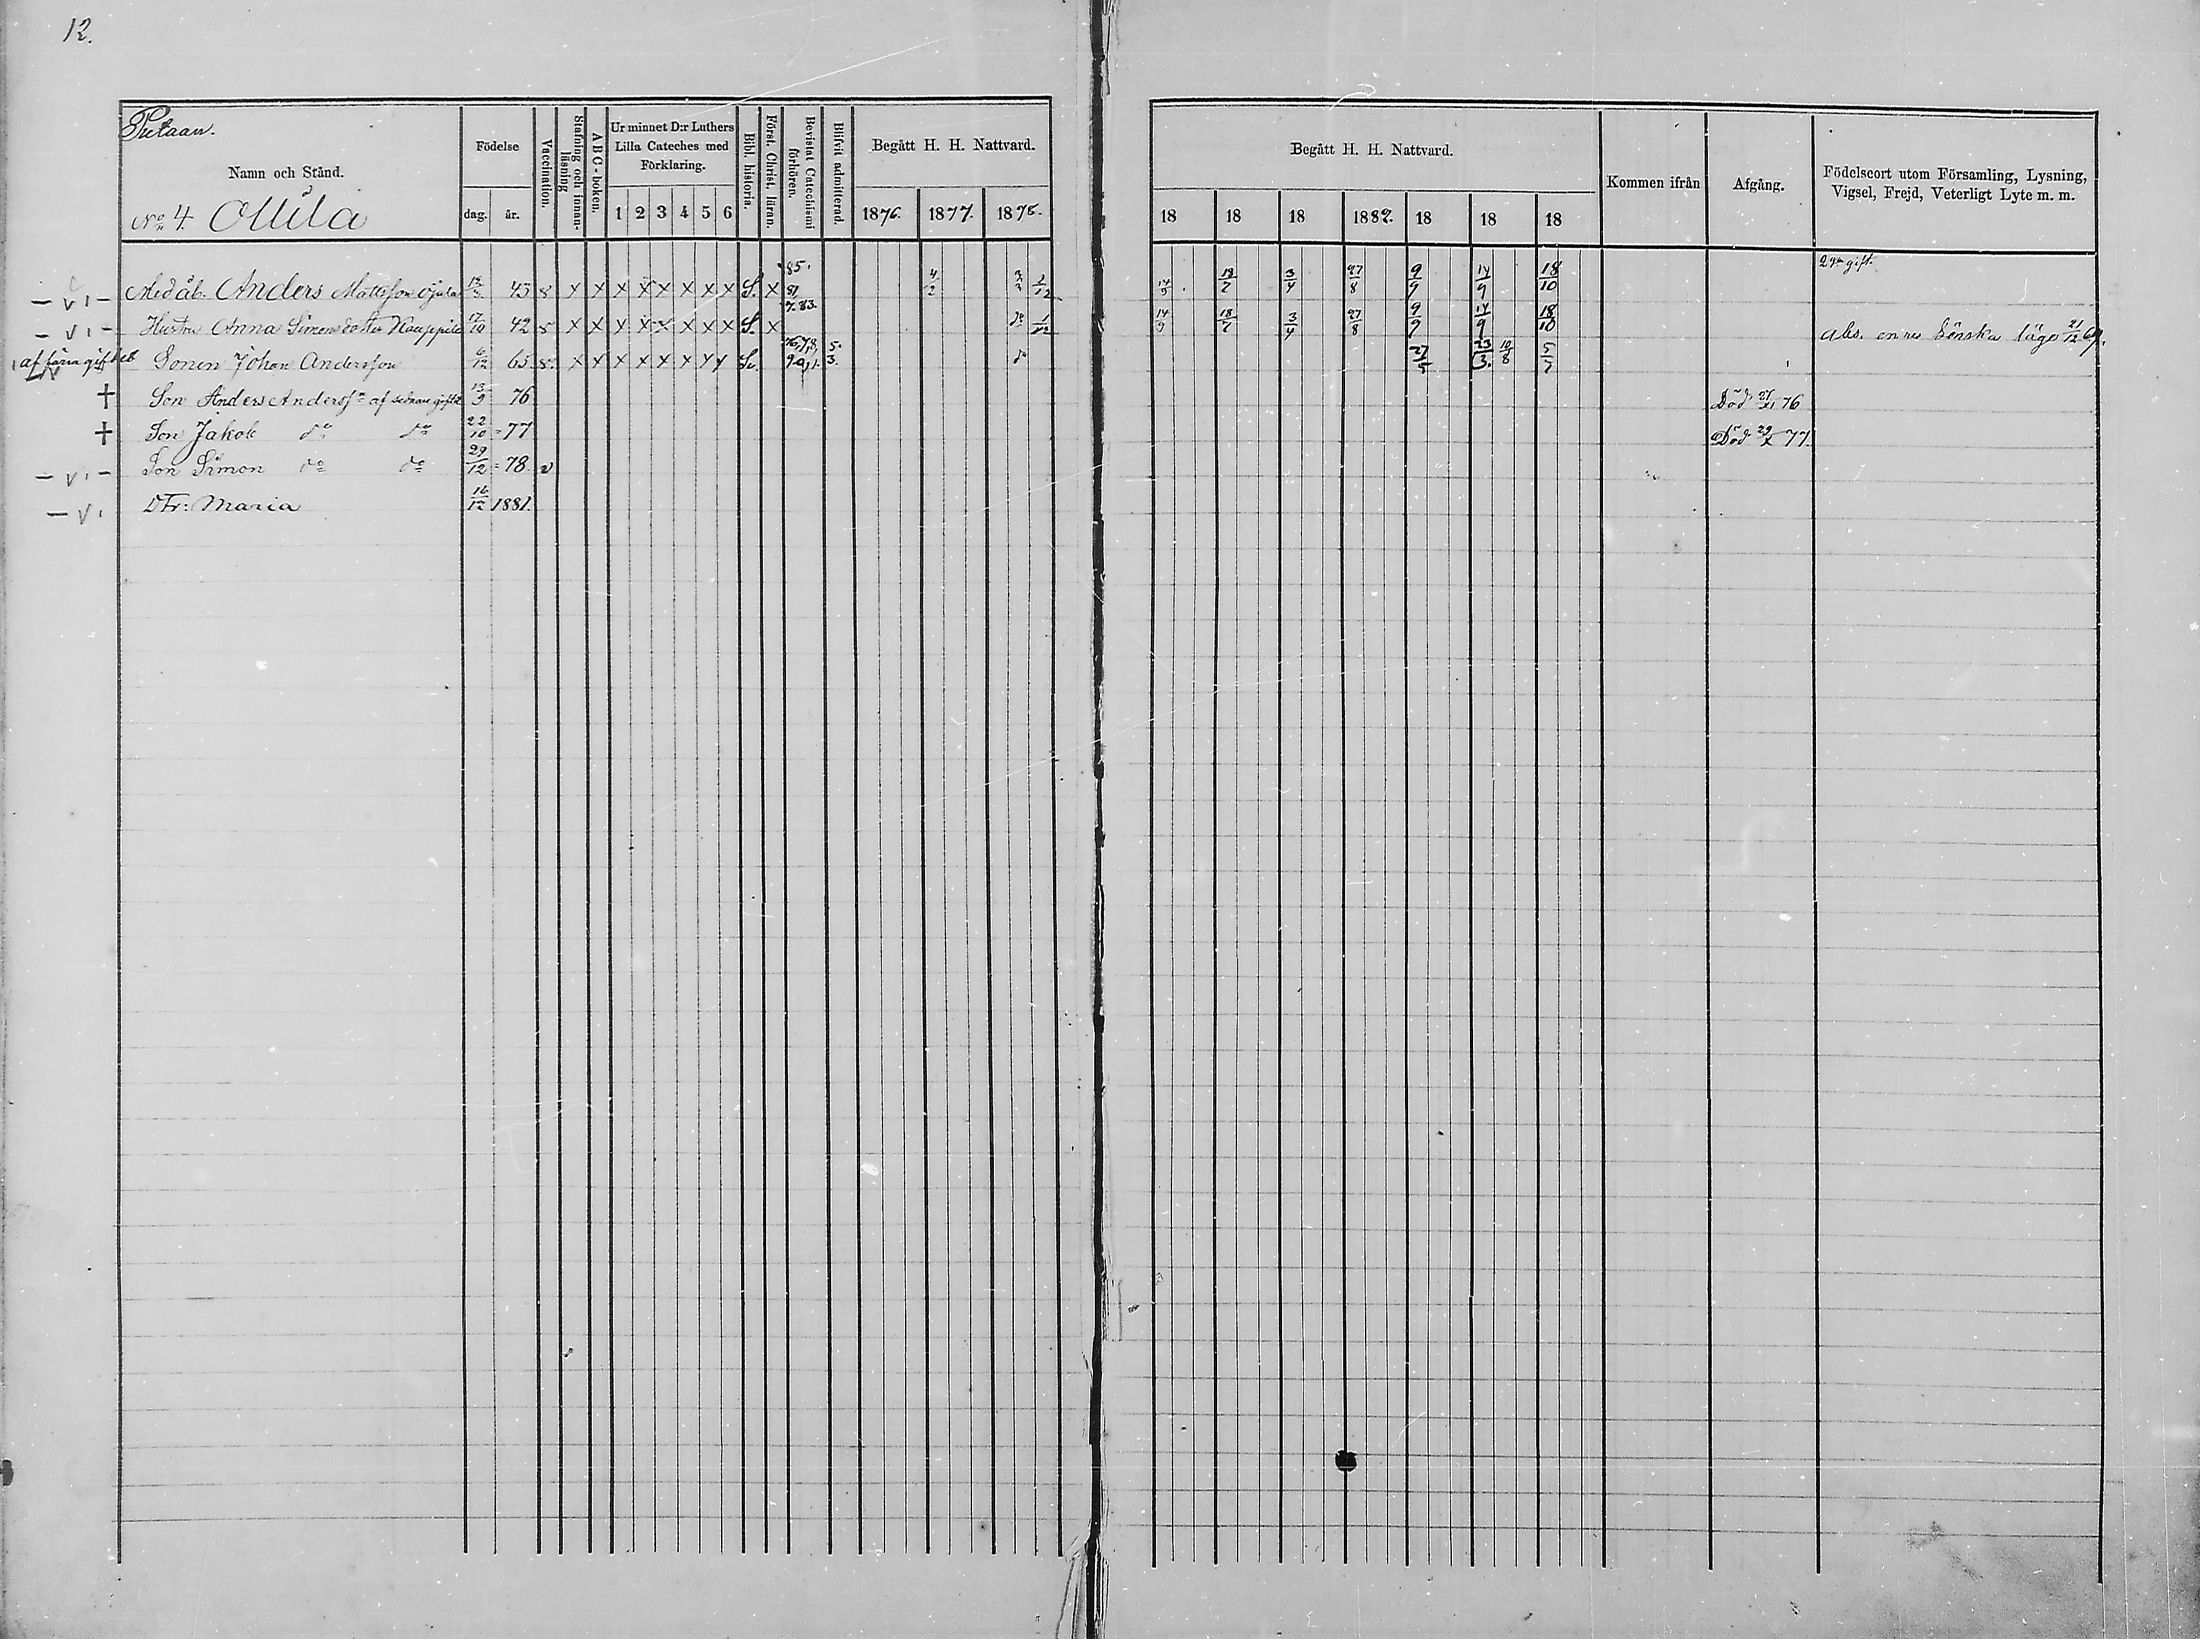 12.
Namn och Stånd.
No 4. Ollila
Födelse
dag. år.
Vaccination.
Stafning och innan-läsning
ABC-boken.
Ur minnet D:r Luthers
Lilla Cateches med
Förklaring.
1 2 3 4 5 6
Bibl. historia.
Först. Christ. läran.
Bevistat Catechismi förhören.
Blifvit admitterad.
Begått H. H. Nattvard.
1876. 1877. 1878.
Begått H. H. Nattvard.
18 18 18 1882. 18 18 18
Kommen ifrån
Afgång.
Födelseort utom Församling, Lysning,
Vigsel, Frejd, Veterligt Lyte m. m.
85.
Anders Mattsson 43 x x x x x x x x S. x 81 4/2 14/9 18/7 3/4 27/8 9/9 14/9 18/10
7.83.
Hustru Anna Simonsdotter 17/10 42 x x x x x x x x S. x 1/12 14/9 18/7 3/4 27/8 9/9 14/9 18/10 21/12 69.
Sonen Johan Andersson 6/12 65 x x x x x x x x 27/5 23/3. 10/8 5/7
† Son Anders Anderss:n af sednare giftet 13/9 76 Död 76
† Son Jakob do do 22/10 77 Död 29/X 77.
Son Simon do do 29/12 78 v
Dtr: Maria 16/12 1881.